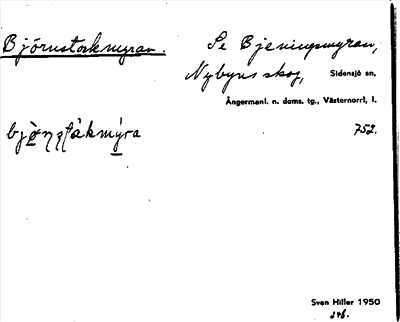 Björnstackmyran. Se Bjeningsmyran,
Nybyns skog, Sidensjö sn,
Ångermanl. n. doms. tg., Västernorrl. l.
752.
Sven Hiller 1950